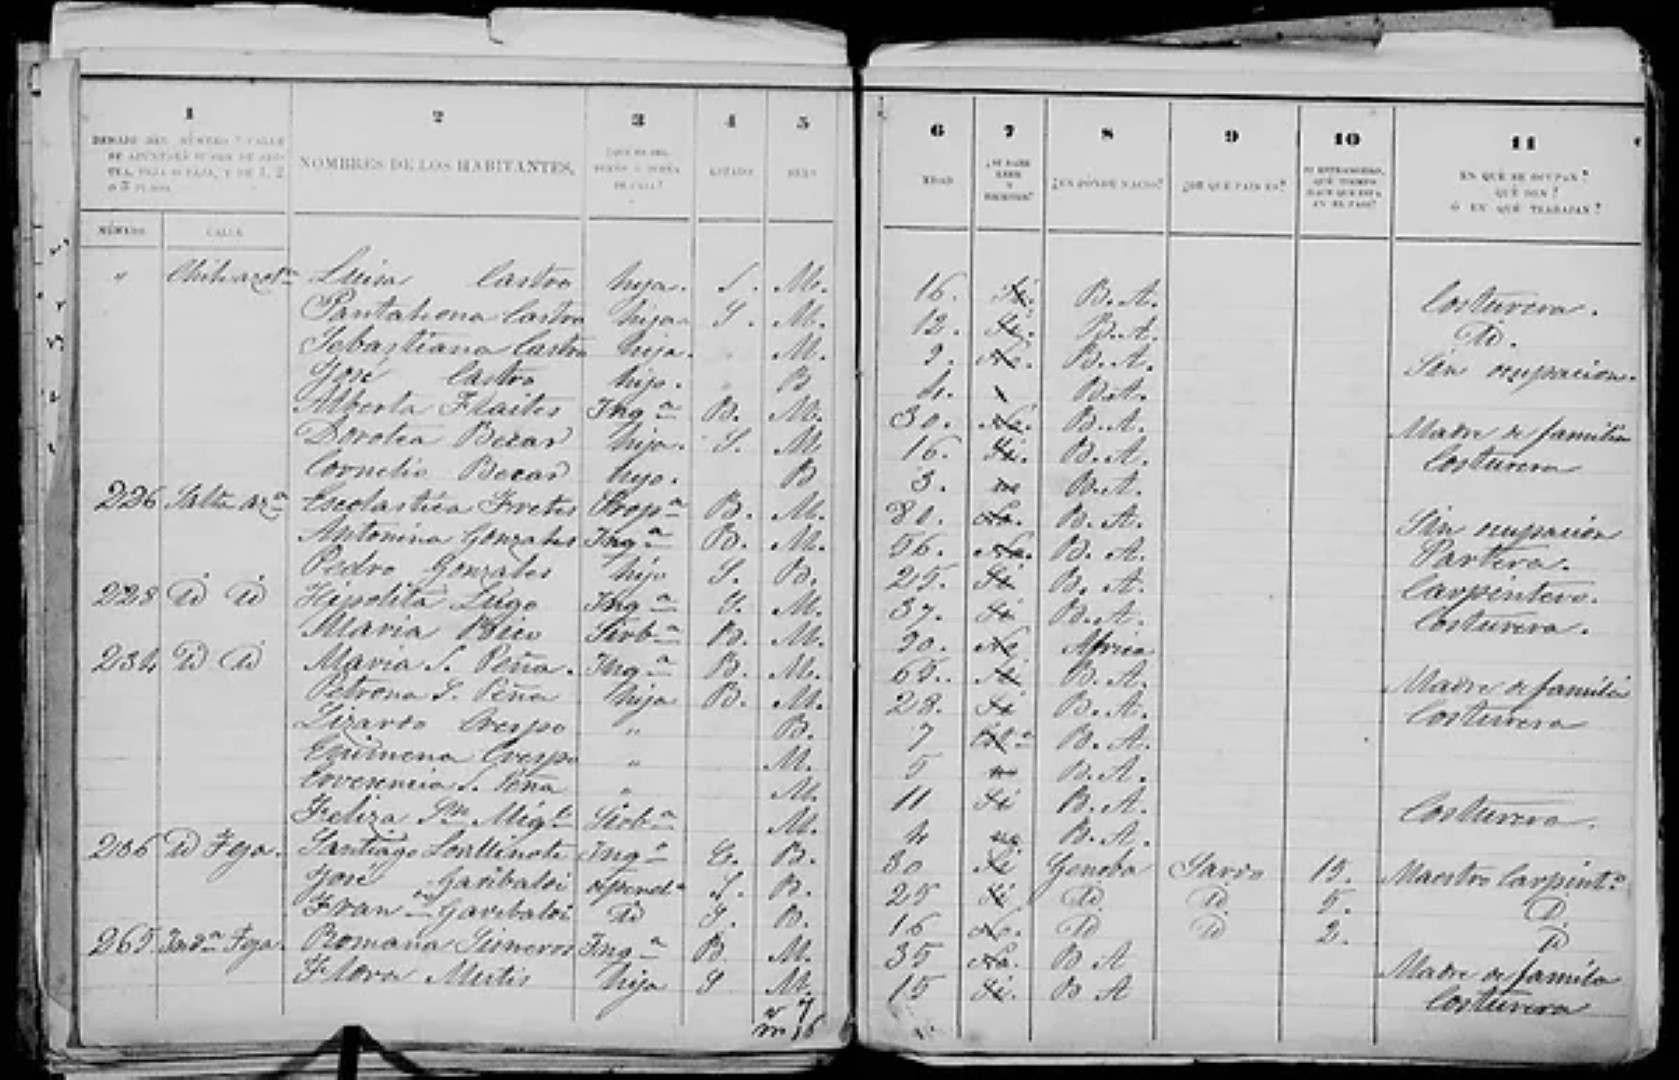 1 2 3 4 5 6 7 8 9 10 11
DEBAJO DEL NÚMERO Y CALLE
SE APUNTARÁ SI SON DE AZO-
TEA, TEJA Ó PAJA, Y DE 1, 2
Ó 3 PISOS
NOMBRES DE LOS HABITANTES.
¿QUÉ ES DEL
DUEÑO Ó DUEÑA
DE CASA?
ESTADO
SEXO
EDAD
¿SI SABE
LEER
Y
ESCRIBIR?
¿EN DÓNDE NACIÓ?
¿DE QUÉ PAÍS ES?
SI EXTRANGERO,
QUÉ TIEMPO
HACE QUE ESTÁ
EN EL PAÍS?
EN QUÉ SE OCUPAN?
QUÉ SON?
Ó EN QUÉ TRABAJAN?
NÚMERO CALLE
" Luisa Castro hija. S. M. 16. Si. B. A. Costurera.
Pantaleona Castro hija S. M. 12. Si. B. A. Id.
Sebastiana Castro hija. M. 2. No. B. A. Sin ocupacion.
José Castro hijo. B 4. B. A.
Alberta Fraites Inqª B. M. 30. No. B. A. Madre de familia
Dorotea Becar hija. S. M. 16. Si. B. A. Costurera
Cornelio Becar hijo. B 3. no B. A.
226 Salta azª Escolastica Fretes Propª B. M. 80. No. B. A. Sin ocupacion
Antonina Gonzales Inqª B. M. 56. No. B. A. Partera.
Pedro Gonzales hijo S. B. 25. Si B. A. Carpintero.
228 Id Id Hipolita Lugo Inqª S. M. 37. Si B. A. Costurera.
Maria Sirbª B. M. 90. No Africa
234 Id Id Maria S. Peña. Inqª B. M. Si B. A. Madre de familia
Petrona S. Peña hija B. M. 28. Si B. A. Costurera
Lizardo Crespo " B. 7 B. A.
Crespo " M. 5 no B. A.
S. Peña " M. 11 Si B. A. Costurera.
Feliza Sn Migl Sirbª M. 4 no B. A.
236 Id Teja. Santiago Inqº C. B. 30 Si Genova Sardo 15. Maestro Carpintº
José Garibaldi dependte S. B. 25 Si Id Id 5. Id
Franco Garibaldi Id S. B. 16 No. Id Id 2. Id
265 Indª Teja. Romana Sisneros Inqª B M. 35 No. B A Madre de familia
Flora hija S M. 15 Si. B A Costurera
v 7
m 16